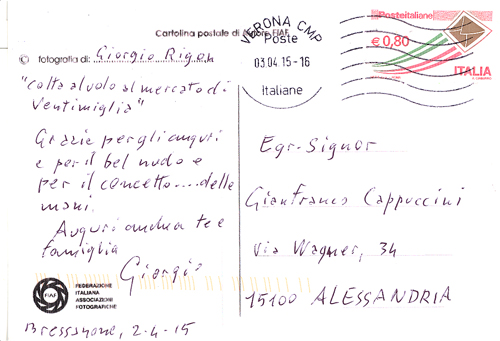 Cartolina postale di Autore FIAF
© fotografia di: Giorgio Rigon
"Colta al volo al mercato di
Ventimiglia"
Grazie per gli auguri
e per il bel nudo e
per il concetto....delle
mani.
Auguri anche a te e
famiglia
Giorgio
FIAF
FEDERAZIONE
ITALIANA
ASSOCIAZIONI
FOTOGRAFICHE
Bressanone, 2-4-15
VERONA CMP
Poste
03.04.15-16
Italiane
Posteitaliane
€0,80
ITALIA
Egr. Signor
Gianfranco Cappuccini
Via Wagner, 34
15100 ALESSANDRIA